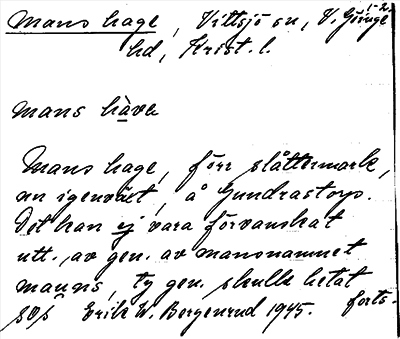 Mans hage, Vittsjö sn, V. Göinge 1-2.
hd, Krist. l.
mans hàve
Mans hage, förr slåttermark,
nu igenväxt, å Gundrastorp.
Det kan ej vara förvanskat
utt. av gen. av mansnamnet
mauns, ty gen. skulle hetat
Erik W. Bergenrud 1945. forts.